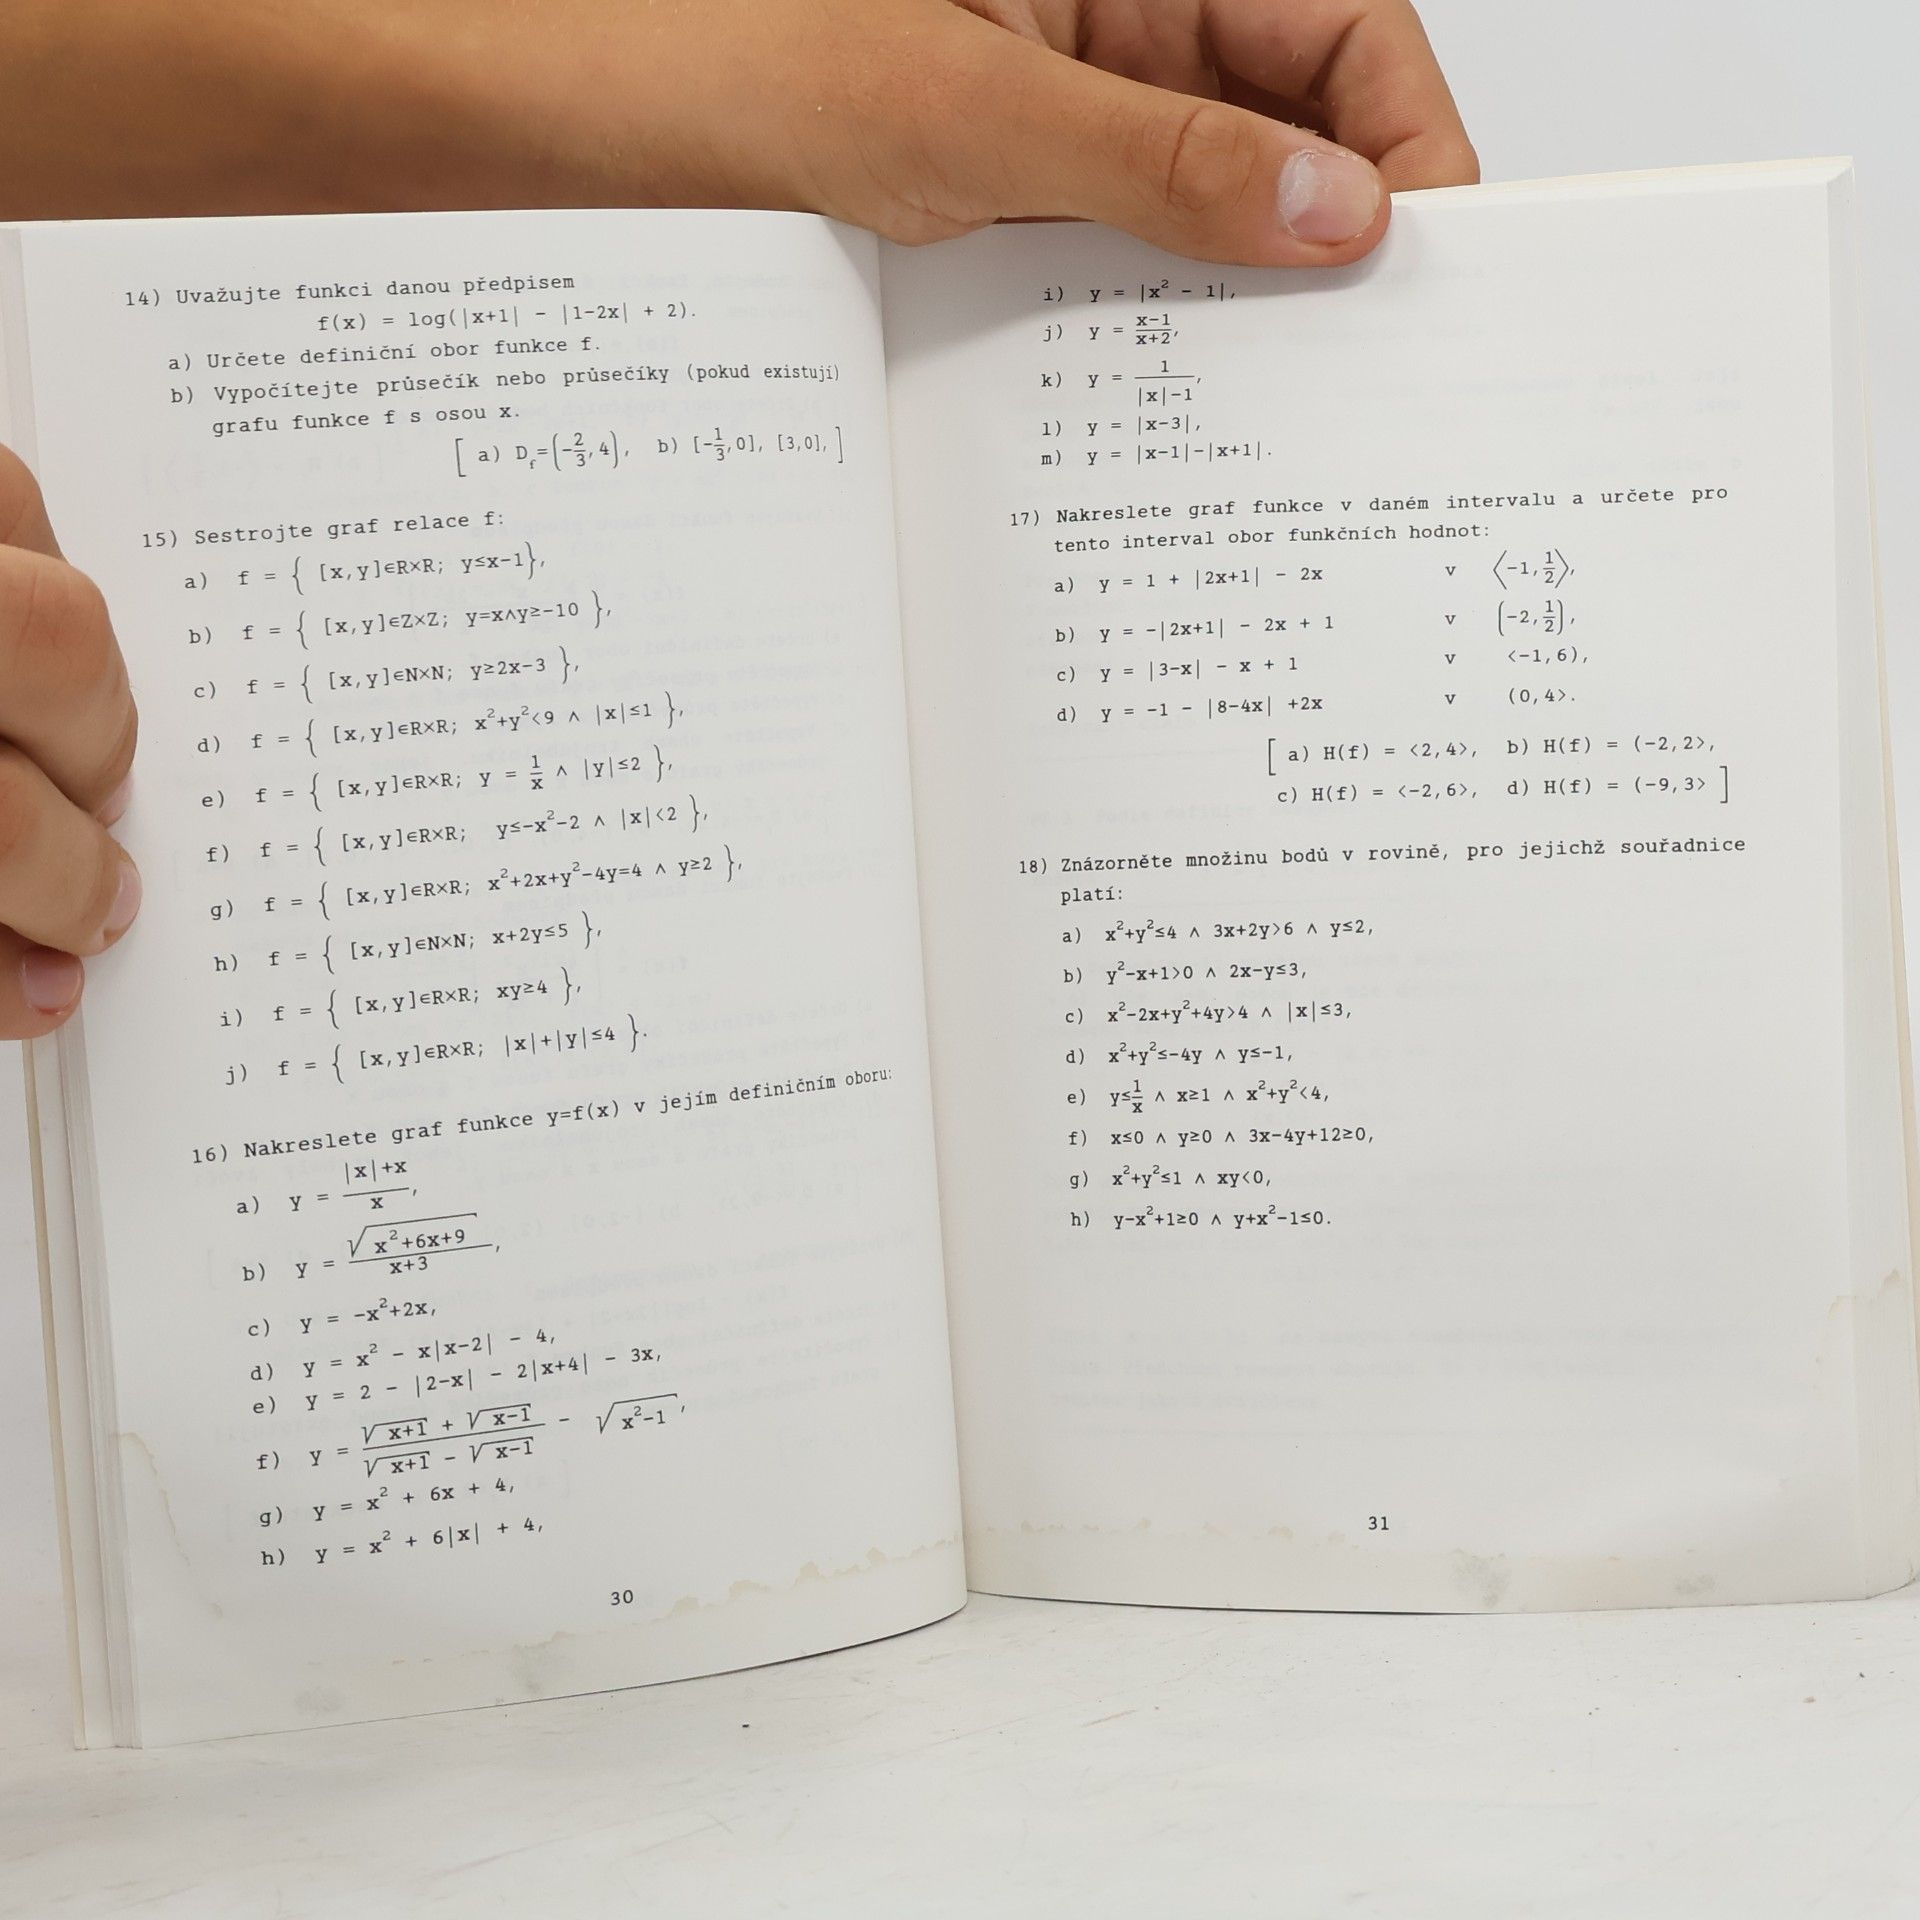 14) Uvažujte funkci danou předpisem
f(x) = log(|x+1| - |1-2x| + 2).
a) Určete definiční obor funkce f.
b) Vypočítejte průsečík nebo průsečíky (pokud existují)
grafu funkce f s osou x.
[ a) D_f=(-2/3, 4), b) [-1/3,0], [3,0], ]
15) Sestrojte graf relace f:
a) f = { [x,y]∈R×R; y≤x-1},
b) f = { [x,y]∈Z×Z; y=x∧y≥-10 },
c) f = { [x,y]∈N×N; y≥2x-3 },
d) f = { [x,y]∈R×R; x²+y²<9 ∧ |x|≤1 },
e) f = { [x,y]∈R×R; y = 1/x ∧ |y|≤2 },
f) f = { [x,y]∈R×R; y≤-x²-2 ∧ |x|<2 },
g) f = { [x,y]∈R×R; x²+2x+y²-4y=4 ∧ y≥2 },
h) f = { [x,y]∈N×N; x+2y≤5 },
i) f = { [x,y]∈R×R; xy≥4 },
j) f = { [x,y]∈R×R; |x|+|y|≤4 }.
16) Nakreslete graf funkce y=f(x) v jejím definičním oboru:
a) y = (|x|+x)/x,
b) y = √(x²+6x+9)/(x+3),
c) y = -x²+2x,
d) y = x² - x|x-2| - 4,
e) y = 2 - |2-x| - 2|x+4| - 3x,
f) y = (√(x+1) + √(x-1))/(√(x+1) - √(x-1)) - √(x²-1),
g) y = x² + 6x + 4,
h) y = x² + 6|x| + 4,
30
i) y = |x² - 1|,
j) y = (x-1)/(x+2),
k) y = 1/(|x|-1),
l) y = |x-3|,
m) y = |x-1|-|x+1|.
17) Nakreslete graf funkce v daném intervalu a určete pro
tento interval obor funkčních hodnot:
a) y = 1 + |2x+1| - 2x v ⟨-1,1/2⟩,
b) y = -|2x+1| - 2x + 1 v (-2,1/2),
c) y = |3-x| - x + 1 v <-1,6),
d) y = -1 - |8-4x| +2x v (0,4>.
[ a) H(f) = <2,4>, b) H(f) = (-2,2>,
c) H(f) = <-2,6>, d) H(f) = (-9,3> ]
18) Znázorněte množinu bodů v rovině, pro jejichž souřadnice
platí:
a) x²+y²≤4 ∧ 3x+2y>6 ∧ y≤2,
b) y²-x+1>0 ∧ 2x-y≤3,
c) x²-2x+y²+4y>4 ∧ |x|≤3,
d) x²+y²≤-4y ∧ y≤-1,
e) y≤1/x ∧ x≥1 ∧ x²+y²<4,
f) x≤0 ∧ y≥0 ∧ 3x-4y+12≥0,
g) x²+y²≤1 ∧ xy<0,
h) y-x²+1≥0 ∧ y+x²-1≤0.
31